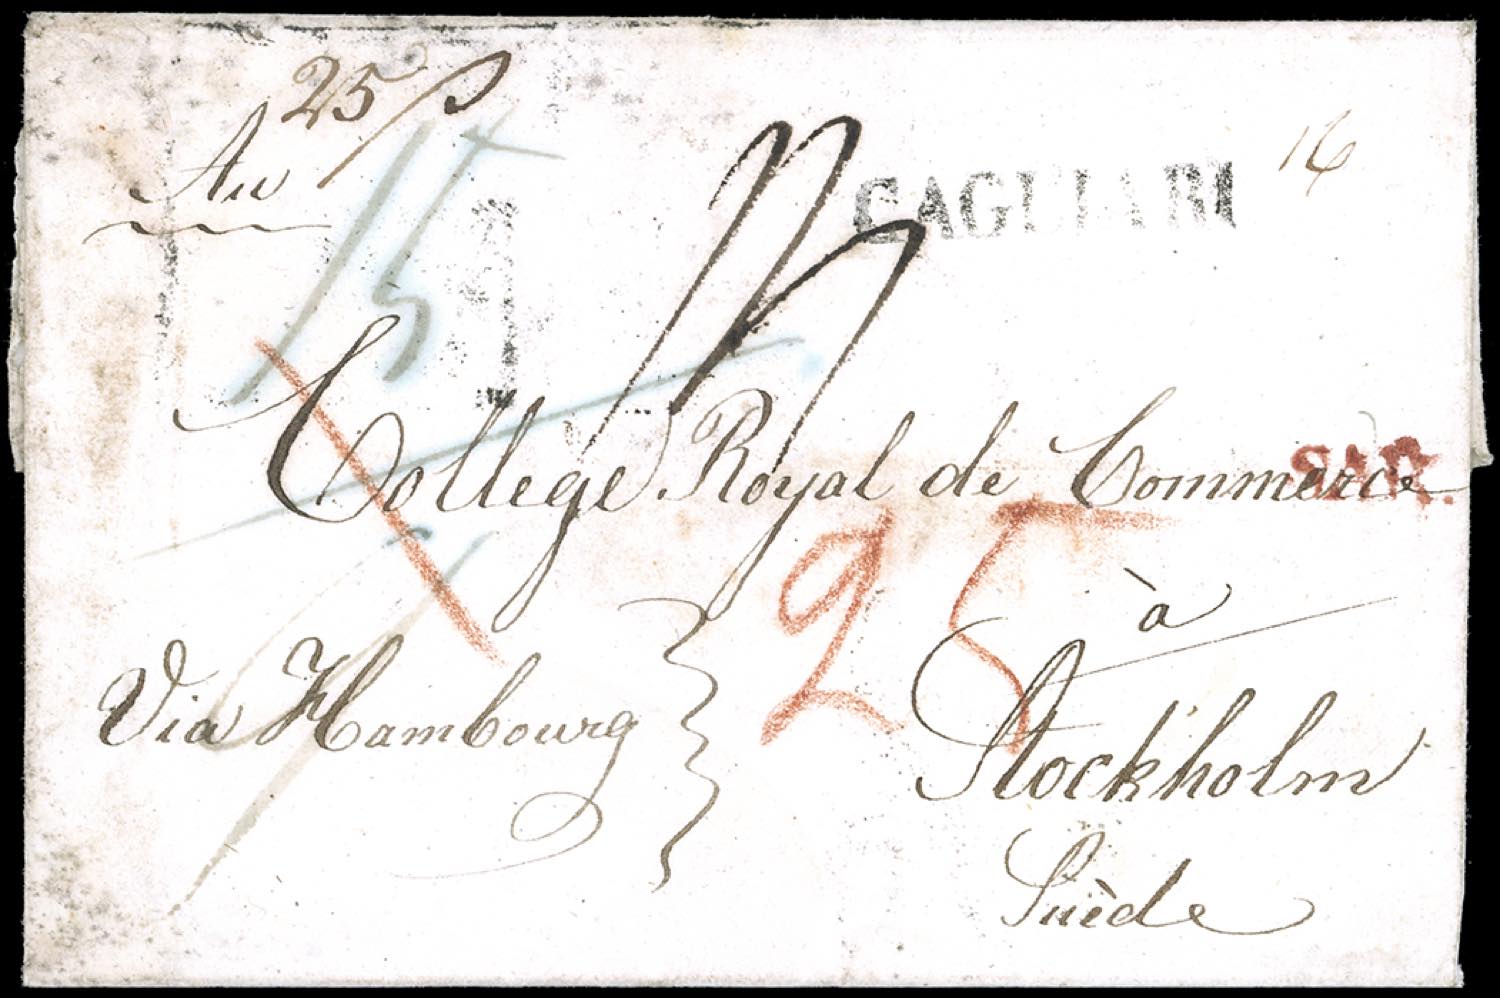 25
Au
CAGLIARI
16
15
College Royal de Commerce
SAR.
25
à
Via Hambourg
Stockholm
Suède